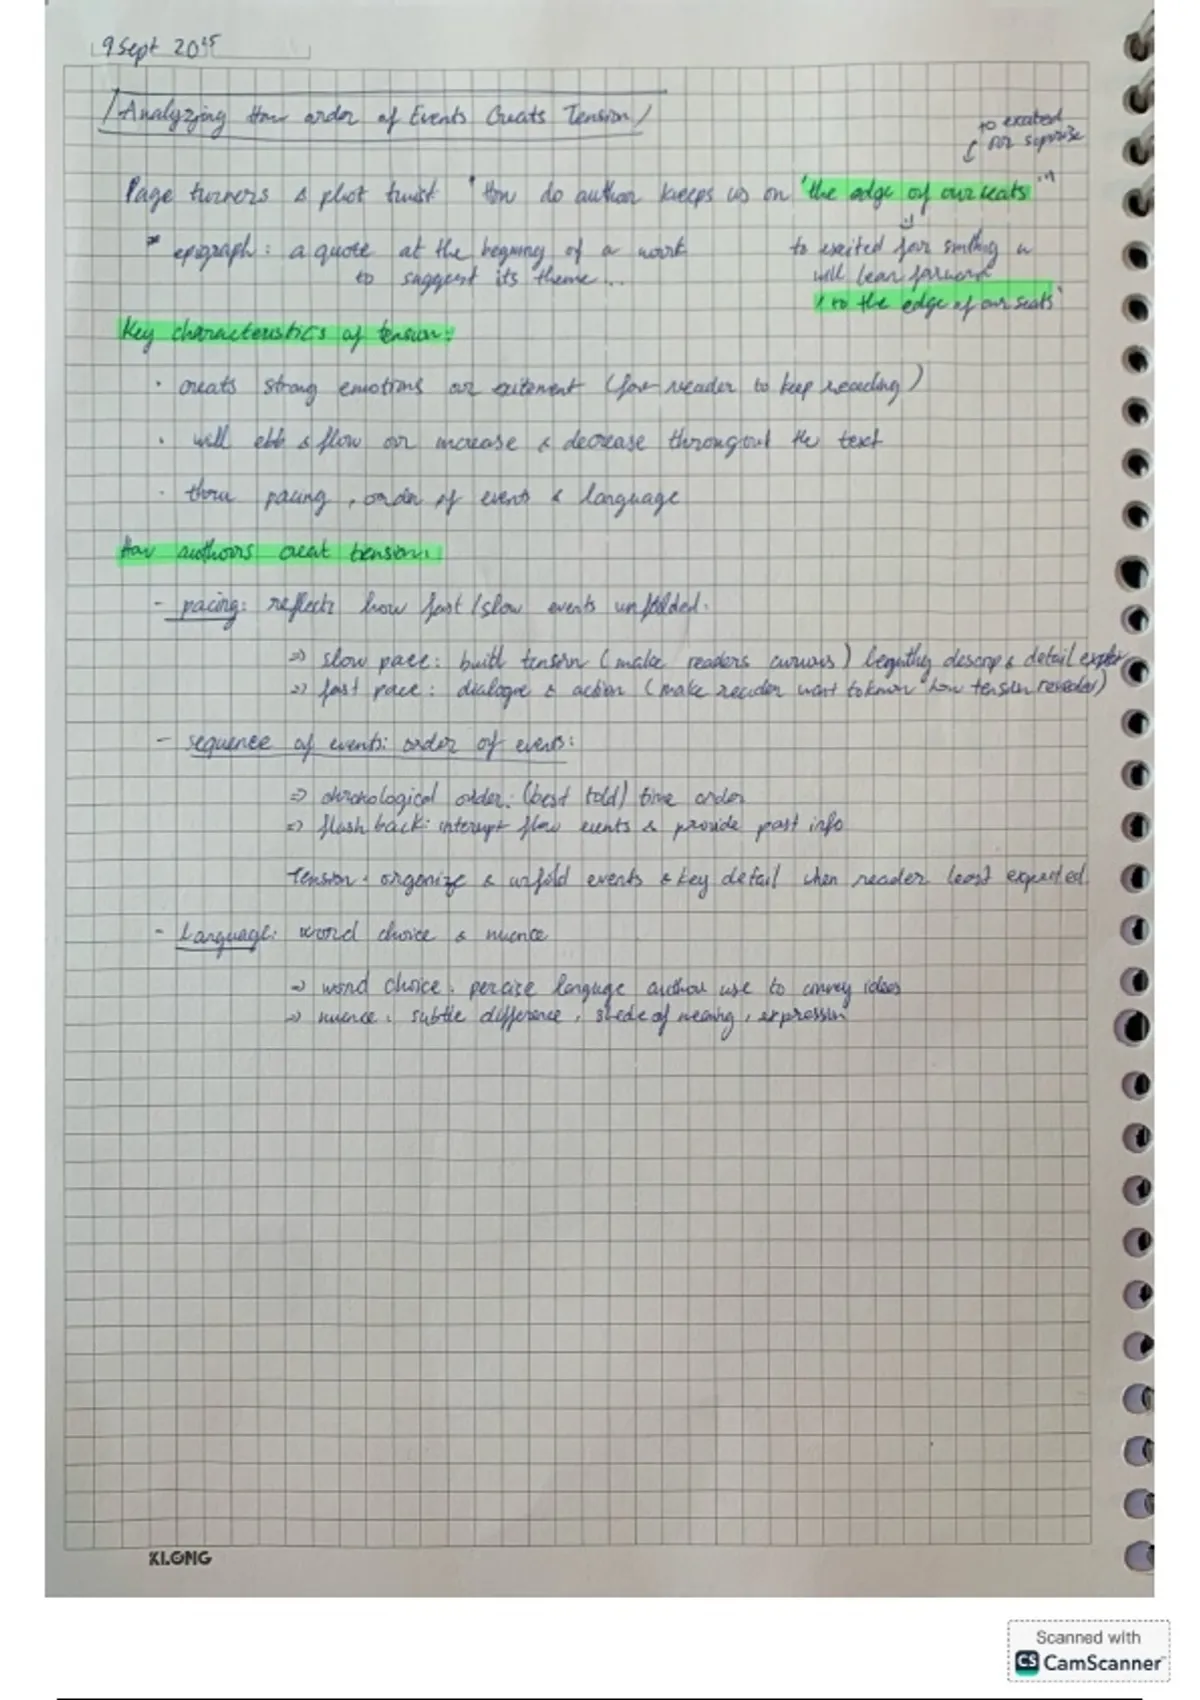 9 Sept 20
Analyzjing How order of Events Creats Tension
to excited
or suprize
Page turners & plot twist "How do author keeps us on 'the edge of our seats'"
* epigraph: a quote at the begining of a work
to suggest its theme...
to excited for smthing u
will lean forward
'to the edge of our seats'
Key characteristics of tension:
· creats strong emotions or exitement (for reader to keep reading)
· will ebb & flow or increase & decrease throughout the text
· thru pacing, order of event & language
How authors creat tension:
- pacing: reflects how fast/slow events unfolded.
=> slow pace: built tension (make readers curious) lengthy descrip & detail
=> fast pace: dialogue & action (make reader want to know how tension revealed)
- sequence of events: order of events:
=> chronological order: (best told) time order
=> flash back: interupt flow events & provide past info
Tension: organize & unfold events & key detail when reader least expected.
- Language: word choice & nuence
=> word choice: percise languge author use to convey ideas
=> nuence: subtle difference, shade of meaning, expression
KLONG
Scanned with
CS CamScanner